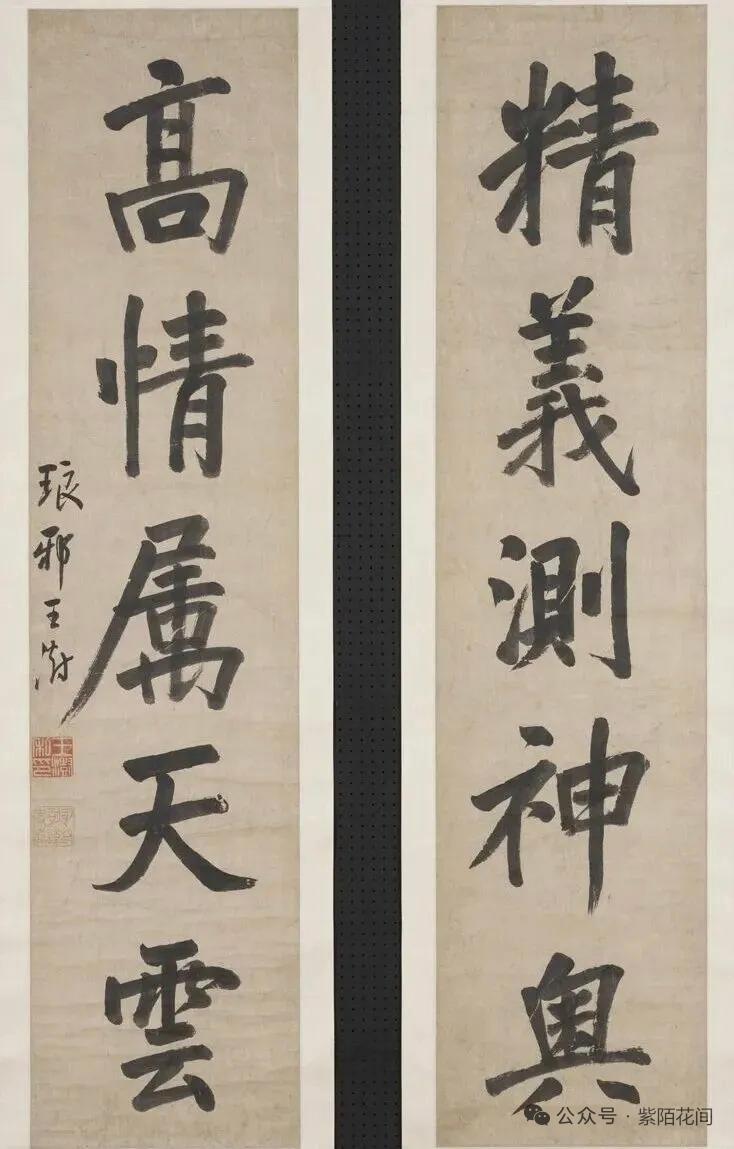 精義測神奥
髙情属天雲
琅邪王澍
王澍私印
公众号·紫陌花间